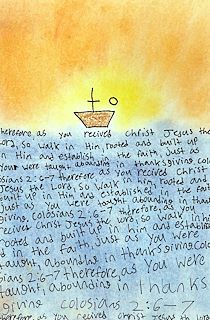 therefore, as you recived Christ Jesus the
Lord, so walk in Him, rooted and built up
in Him and establish in the faith, just as
your were taught abounding in thanksgiving.
colosians 2:6-7 therefore as you recives Christ
Jesus the Lord, so walk in him, rooted and
built up in Him and established in the faith
just as you were taught, abounding in thanks
giving, colosians 2:6-7 therefore, as you
recives Christ Jesus the Lord, so walk in him
rooted and built up in him and established
in the faith, just as you were
taught, abounding in thanksgiving. colo
sians 2:6-7 therefore, as you were
taught, abounding in thanks
giving colosians 2:6-7
therefore as you recives Christ Jesus the